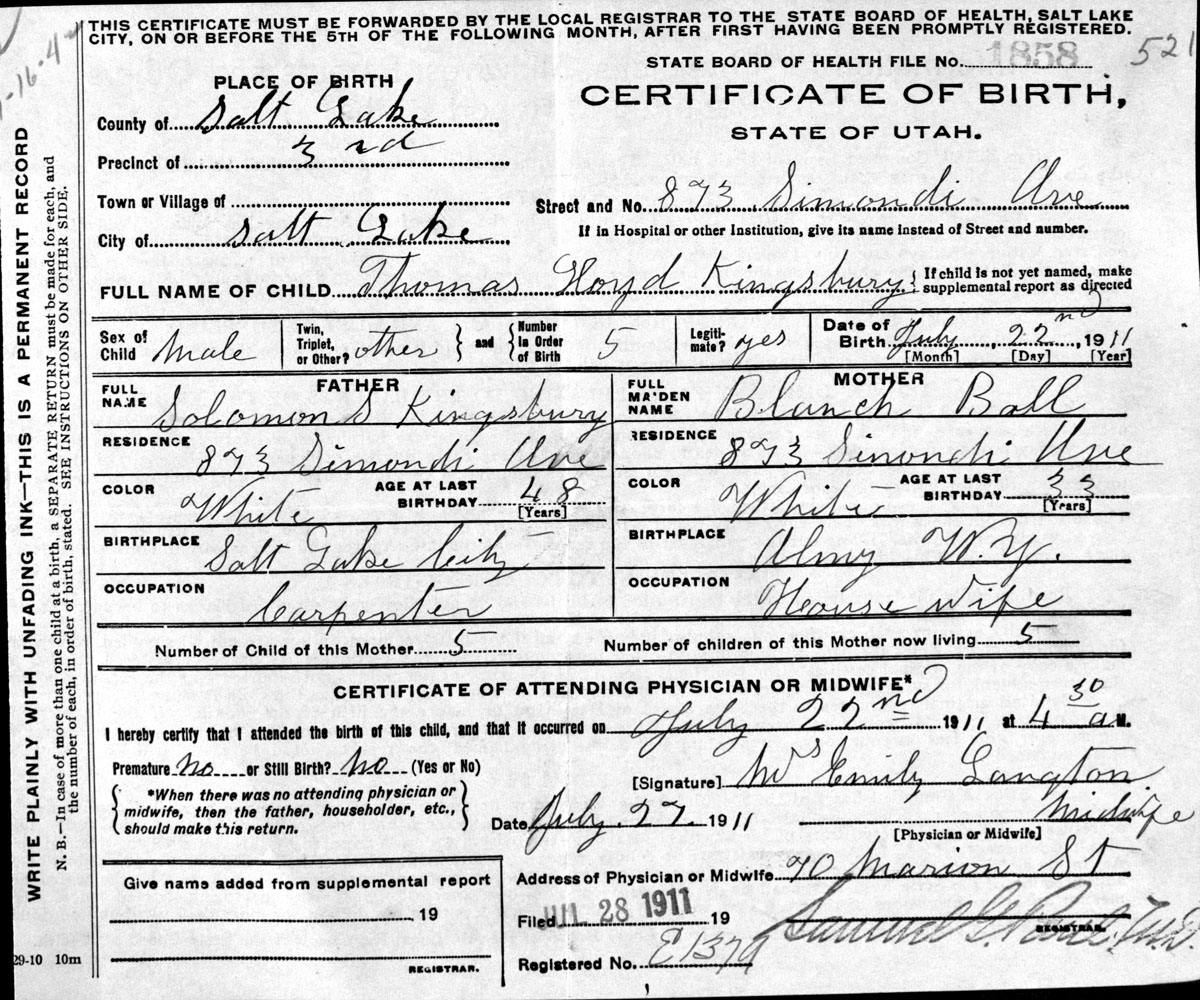 THIS CERTIFICATE MUST BE FORWARDED BY THE LOCAL REGISTRAR TO THE STATE BOARD OF HEALTH, SALT LAKE
CITY, ON OR BEFORE THE 5TH OF THE FOLLOWING MONTH, AFTER FIRST HAVING BEEN PROMPTLY REGISTERED.
STATE BOARD OF HEALTH FILE No. 1858 521
-16-4
WRITE PLAINLY WITH UNFADING INK—THIS IS A PERMANENT RECORD
N. B.—In case of more than one child at a birth, a SEPARATE RETURN must be made for each, and
the number of each, in order of birth, stated. SEE INSTRUCTIONS ON OTHER SIDE.
PLACE OF BIRTH
CERTIFICATE OF BIRTH,
STATE OF UTAH.
County of Salt Lake
Precinct of 3rd
Town or Village of
Street and No. 873 Simondi Ave
City of Salt Lake
If in Hospital or other Institution, give its name instead of Street and number.
FULL NAME OF CHILD Thomas Floyd Kingsbury { If child is not yet named, make
supplemental report as directed
Sex of Child Male
Twin, Triplet, or Other? other } and { Number in Order of Birth 5
Legiti-mate? yes
Date of Birth July 22nd, 1911
[Month] [Day] [Year]
FATHER
MOTHER
FULL NAME Solomon S Kingsbury
FULL MAIDEN NAME Blanch Ball
RESIDENCE 873 Simondi Ave
RESIDENCE 873 Simondi Ave
COLOR White AGE AT LAST BIRTHDAY 48 [Years]
COLOR White AGE AT LAST BIRTHDAY 33 [Years]
BIRTHPLACE Salt Lake City
BIRTHPLACE Almy W.Y.
OCCUPATION Carpenter
OCCUPATION House Wife
Number of Child of this Mother 5 Number of children of this Mother now living 5
CERTIFICATE OF ATTENDING PHYSICIAN OR MIDWIFE*
I hereby certify that I attended the birth of this child, and that it occurred on July 22nd 1911 at 4 30 a M.
Premature no or Still Birth? no (Yes or No)
[Signature] Mrs Emily Langton
*When there was no attending physician or
midwife, then the father, householder, etc.,
should make this return.
Date July 27 1911
Midwife
[Physician or Midwife]
Address of Physician or Midwife 70 Marion St
Give name added from supplemental report
19
REGISTRAR.
Filed JUL 28 1911 19
REGISTRAR.
Registered No. E1379
29-10 10m